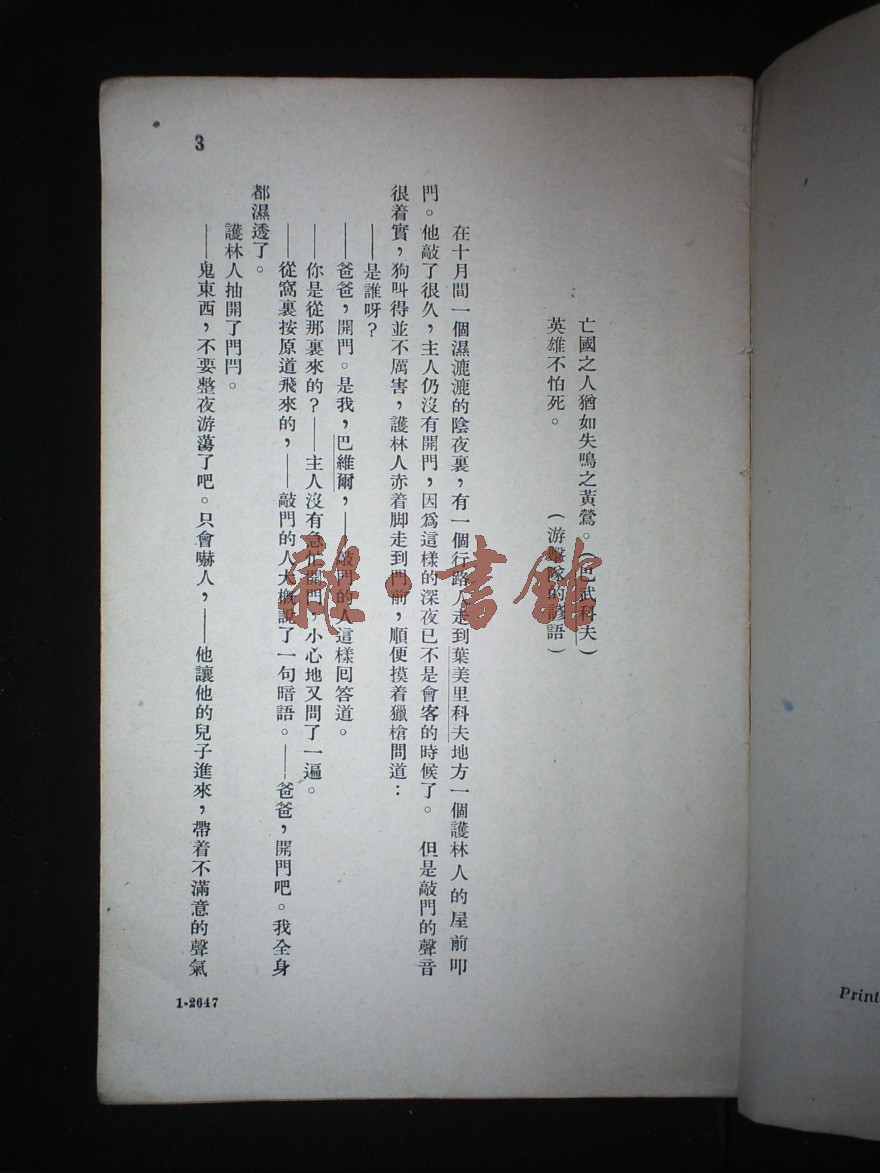 亡國之人猶如失鳴之黃鶯。(巴武科夫)
英雄不怕死。 (游擊隊的諺語)
在十月間一個濕漉漉的陰夜裏,有一個行路人走到葉美里科夫地方一個護林人的屋前叩
門。他敲了很久,主人仍沒有開門,因爲這樣的深夜已不是會客的時候了。 但是敲門的聲音
很着實,狗叫得並不厲害,護林人赤着脚走到門前,順便摸着獵槍問道:
——是誰呀?
——爸爸,開門。是我,巴維爾,——敲門的人這樣回答道。
——你是從那裏來的?——主人沒有急忙開門,小心地又問了一遍。
——從窩裏按原道飛來的,——敲門的人大概說了一句暗語。——爸爸,開門吧。我全身
都濕透了。
護林人抽開了門閂。
——鬼東西,不要整夜游蕩了吧。只會嚇人,——他讓他的兒子進來,帶着不滿意的聲氣
3
1-2647
雜·書館
Print